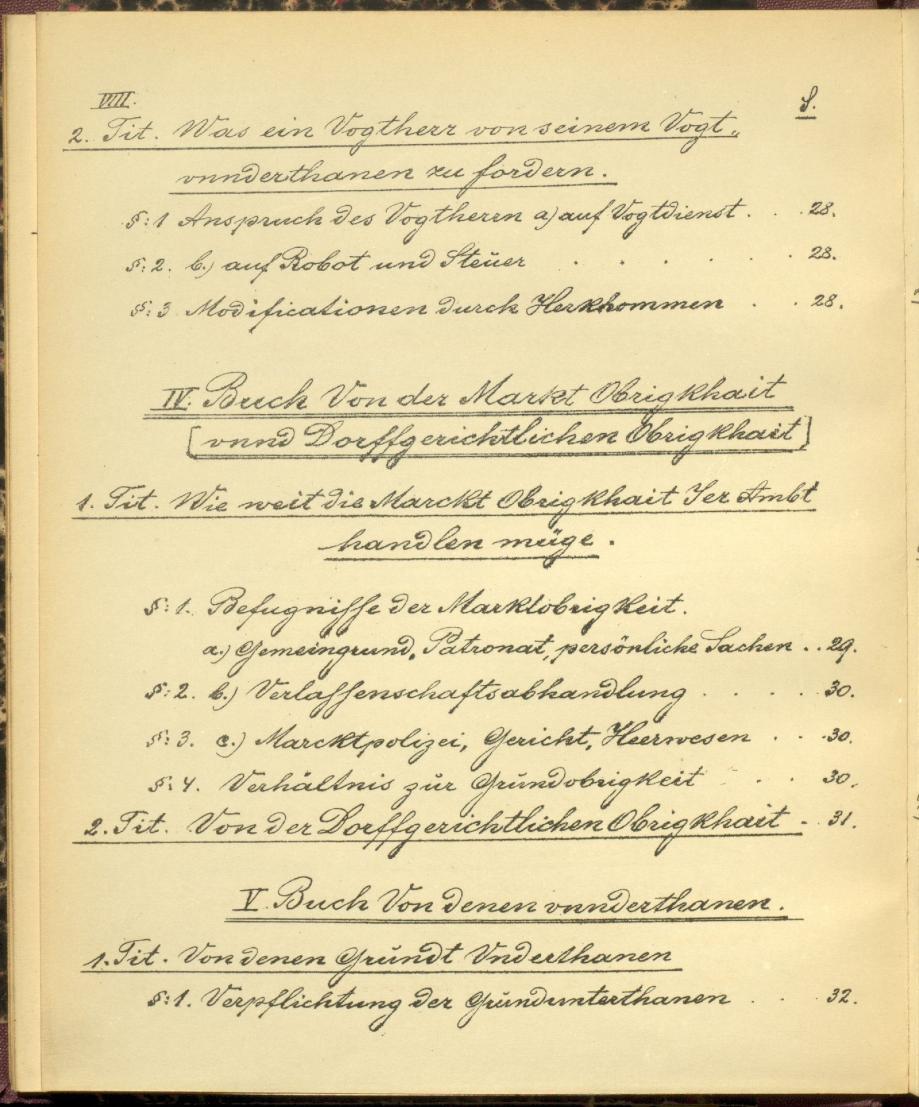 VIII.
S.
2. Tit. Was ein Vogtherr von seinem Vogt„
vnnderthanen zu fordern.
§:1 Anspruch des Vogtherrn a) auf Vogtdienst . . . 28.
§:2. b.) auf Robot und Steüer . . . . . . . 28.
§:3 Modificationen durch Herkhommen . . 28.
IV. Buch Von der Markt Obrigkhait
[vnnd Dorffgerichtlichen Obrigkhait]
1. Tit. Wie weit die Marckt Obrigkhait Ier Ambt
handlen müge.
§:1. Befugnisse der Marktobrigkeit.
a.) Gemeingrund, Patronat, persönliche Sachen . . 29.
§:2. b.) Verlassenschaftsabhandlung . . . . . 30.
§:3. c.) Marcktpolizei, Gericht, Heerwesen . . . 30.
§:4. Verhältnis zur Grundobrigkeit . . . 30.
2. Tit. Von der Dorffgerichtlichen Obrigkhait - . 31.
V. Buch Von denen vnnderthanen.
1. Tit. Von denen Grundt Vnderthanen
§:1. Verpflichtung der Grundunterthanen . . . 32.